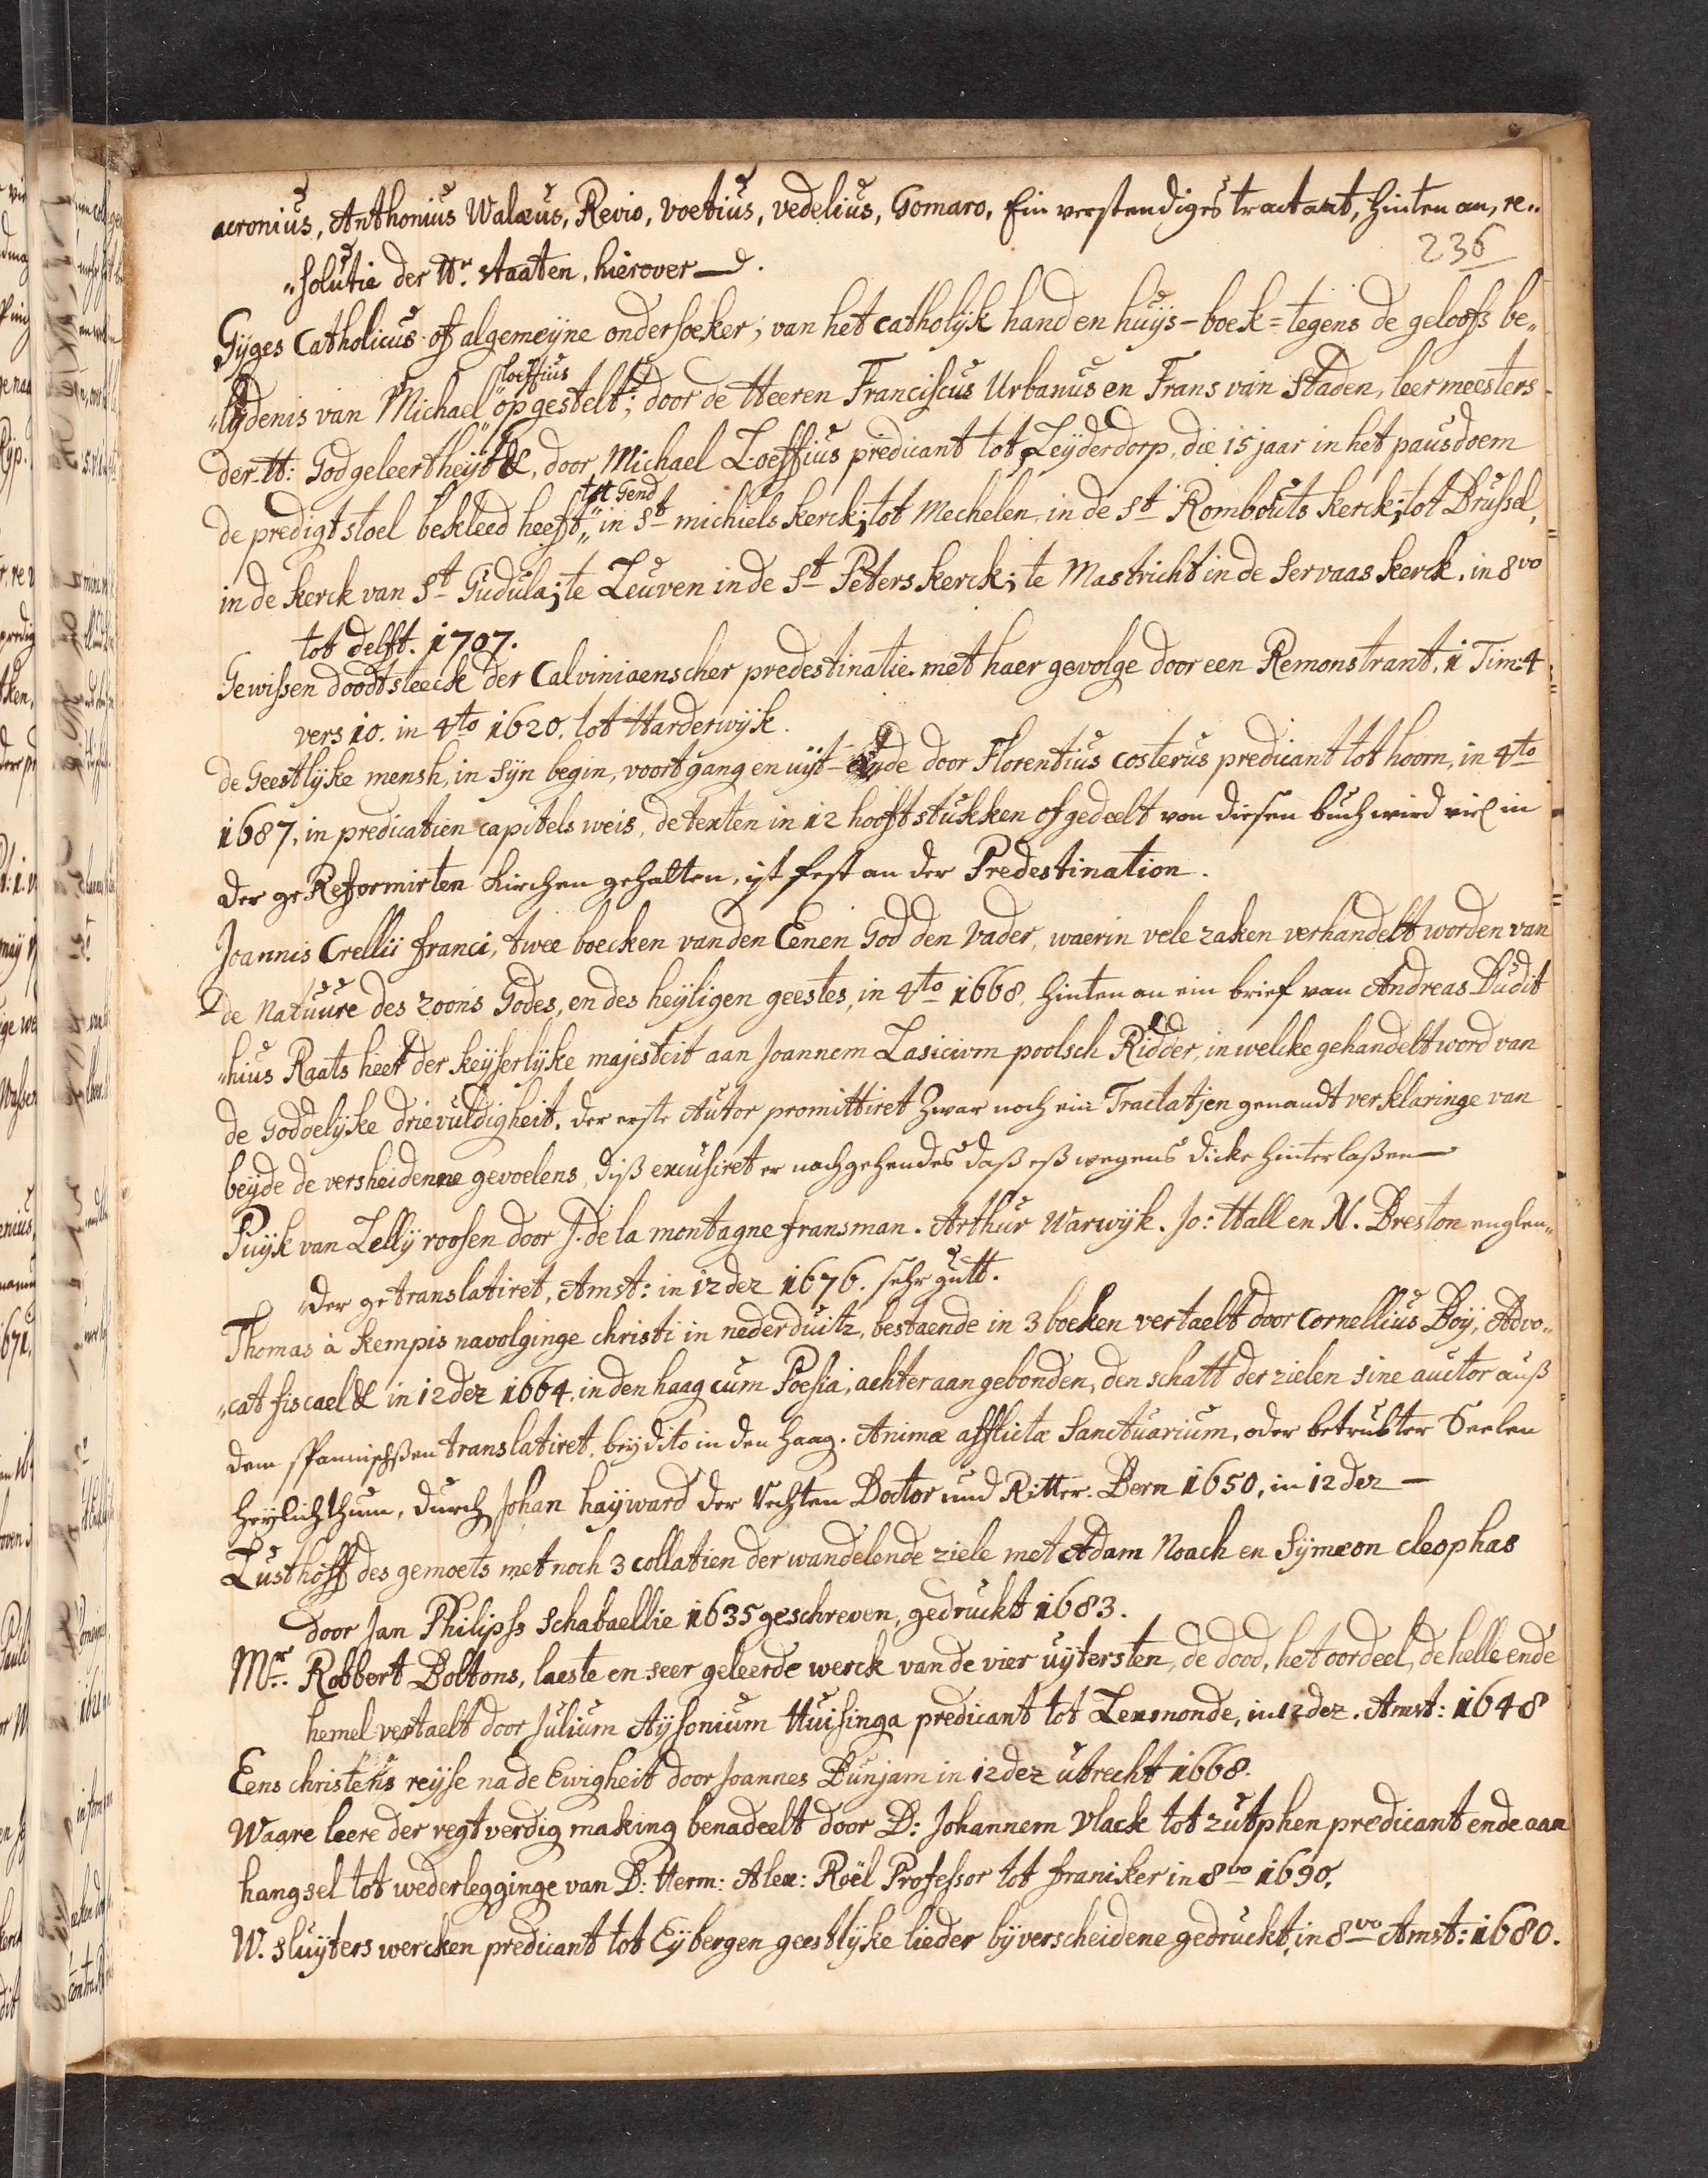 acronius, Anthonius Walæus, Revio, Voetius, Vedelius, Gomaro, Ein verstendiges tractaat, hinten an, re„
236
„solutie der Hr. staaten, hierover
Gÿges Catholicus of algemeyne ondersoeker; van het catholÿk hand en huÿs-boek = tegens de geloofs be„
„lÿdenis van Michael „Loeffius opgestelt; door de Heeren Franciscus Urbanus en Frans van Staden, leermeesters
der H: Godgeleertheÿt &, door Michael Loeffius predicant tot Leÿderdorp, die 15 jaar in het pausdoem
de predigtstoel bekleed heeft, „tot Gend in St michiels kerck; tot Mechelen in de St Rombouts kerck; tot Brussel,
in de kerck van St Gudula; te Leuven in de St Peters kerck; te Mastricht in de Servaas kerck, in 8vo
tot delft. 1707.
Gewissen doodtsteeck der Calviniaenscher predestinatie met haer gevolge door een Remonstrant, 1 Tim: 4
vers 10. in 4to 1620. tot Harderwÿk.
de Geestlÿke mensh, in sÿn begin, voortgang en uÿt-eÿnde door Florentius costerus predicant tot hoorn, in 4to
1687, in predicatien capitels weis, de texten in 12 hooftstukken ofgedeelt von diesen buch wird viel in
der ge Reformirten Kirchen gehalten, ist fest an der Predestination.
Joannis Crellii franci, twee boecken van den Eenen God den Vader, waerin vele zaken verhandelt worden van
de Natuure des zoons Godes, en des heÿligen geestes, in 4to 1668, hinten an ein brief van Andreas Dudit
„hius Raats heer der keÿserlÿke majesteit aan Joannem Lasicivm poolsch Ridder, in welcke gehandelt word van
de Goddelÿke drievuldigheit. der erste Autor promittiret zwar noch ein Tractatjen genandt verklaringe van
beÿde de versheidenne gevoelens, diß excusiret er nachgehendes daß eß wegens dicke hinterlaßen
Puÿk van Lellÿ roosen door J. de la montagne fransman. Arthur Warwÿk. Jo: Hall en N. Preston englen„
„der ge translatiret, Amst: in 12dez 1676. sehr gutt.
Thomas à Kempis navolginge christi in nederduitz, bestaende in 3 boeken vertaelt door Cornellius Boÿ, Advo„
„cat fiscael & in 12dez 1664. in den haag cum Poesia, achter aan gebonden, den schatt der zielen sine auctor auß
dem spannischßen translatiret, beÿ dito in den Haag. Animæ afflictæ Sanctuarium, oder betrubter Seelen
heylichthum, durch Johan haÿward der Rechten Doctor und Ritter. Bern 1650, in 12dez
Lusthoff des gemoets met noch 3 collatien der wandelende ziele met Adam Noach en Sÿmeon cleophas
door Jan Philipss Schabaellie 1635 geschreven, gedruckt 1683.
Mr. Robbert Boltons, laeste en seer geleerde werck van de vier uÿtersten, de dood, het oordeel, de helle ende
hemel vertaelt door Julium Aÿsonium Huisinga predicant tot Lexmonde, in 12dez. Amst: 1648
Eens christens reÿse na de Ewigheit door Joannes Bunjam in 12dez utrecht 1668.
Waare leere der regtverdig making benadeelt door D: Johannem Vlack tot zutphen predicant ende aan
hangsel tot wederlegginge van D: Herm: Alex: Roël Professor tot franiker in 8vo 1690,
W. sluÿters wercken predicant tot Eÿbergen geestlÿke lieder bÿ verscheidene gedruckt, in 8vo Amst: 1680.